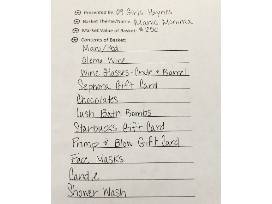 Presented By: 09 Girls Haynes
Basket Theme/Name: Mani's Momma
Market Value of Basket: $ 250
Contents of Basket:
Mani/Pedi
Wine
Wine Glasses - Crate & Barrel
Sephora Gift Card
Chocolates
Lush Bath Bombs
Starbucks Gift Card
Primp & Blow Gift Card
Face Masks
Candle
Shower Wash